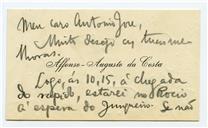 Meu caro Antonio José,
Muito desejo as tuas me
lhoras.
Affonso Augusto da Costa
Logo, ás 10,15, á chegada
do rapido, estarei no Rocio
á espera do Se não